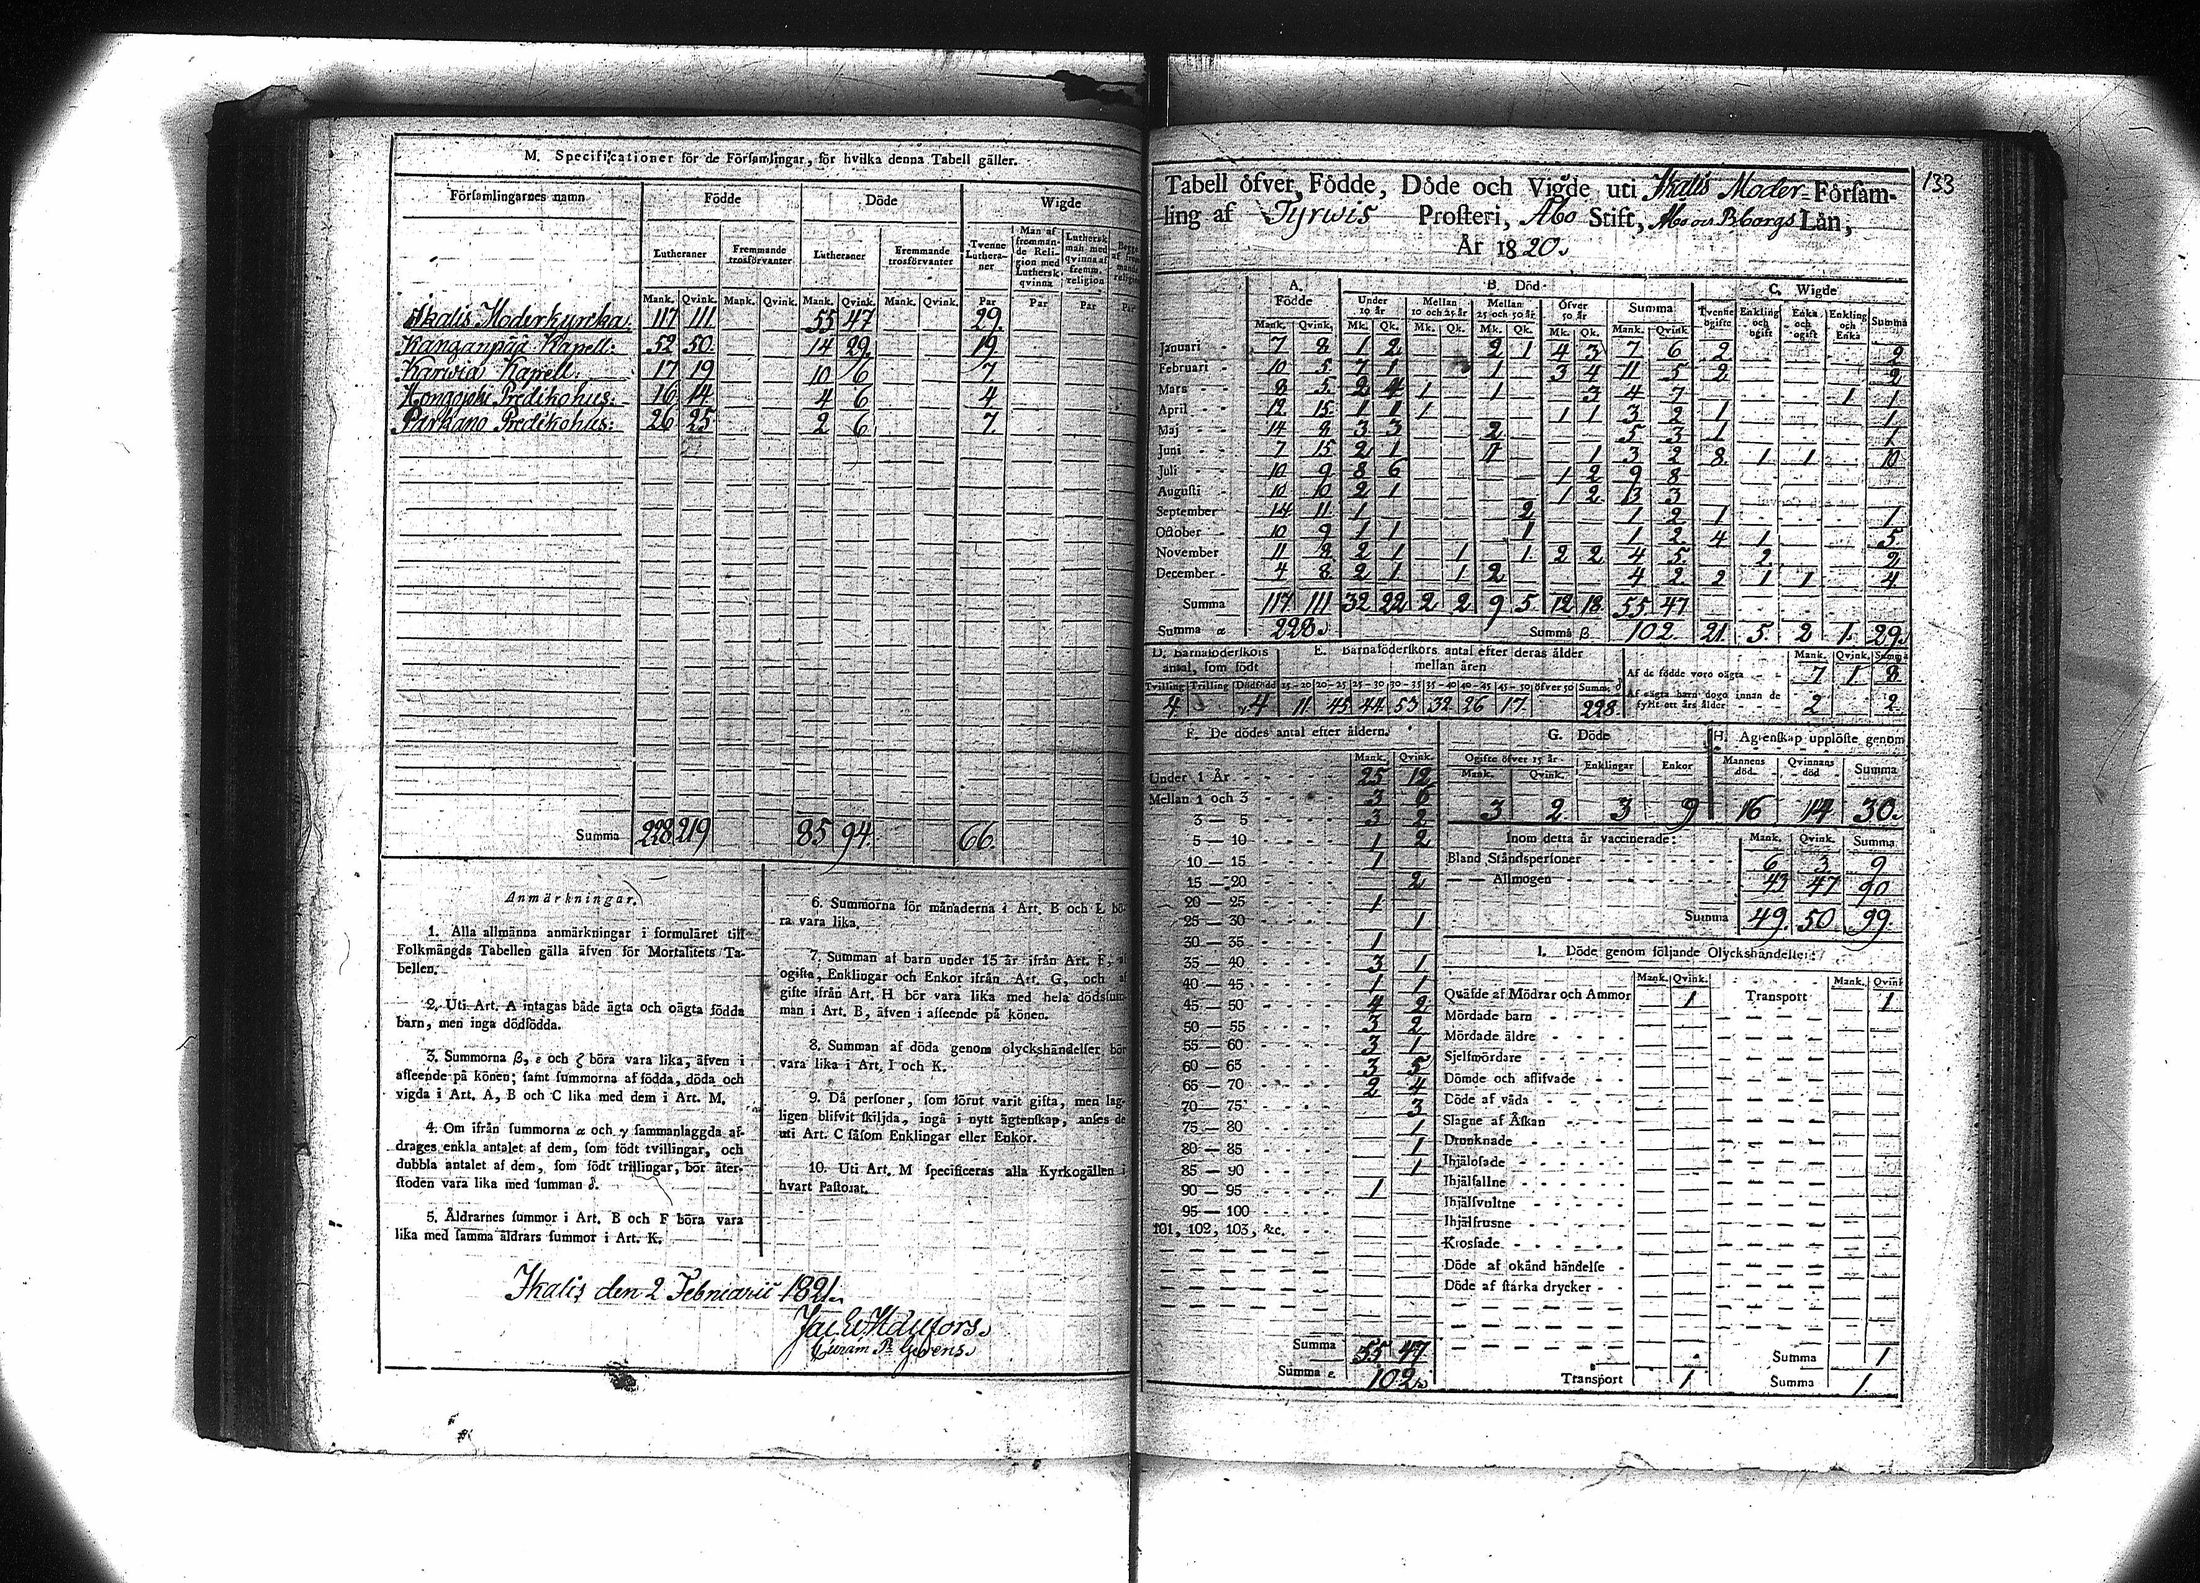 M. Specificationer för de Församlingar, för hvilka denna Tabell gäller.
Församlingarnes namn Födde Döde Wigde
Lutheraner Fremmande trosförvanter Lutheraner Fremmande trosförvanter Tvenne Lutheraner Man af fremmande Religion med Luthersk qvinna Luthersk man med qvinna af fremm. religion
Mank. Qvink. Mank. Qvink. Mank. Qvink. Mank. Qvink. Par Par Par Par
Ikalis Moderkyrcka: 117 111 55 47 29.
Kanganpää Kapell: 52 50 14 29 19.
Karwia Kapell: 17 19 10 6 7.
Hongojoki Predikohus: 16 14 4 6 4
Parkano Predikohus: 26 25 2 6 7.
Summa 228 219 85 94. 66.
Anmärkningar.
1. Alla allmänna anmärkningar i formuläret till
Folkmängds Tabellen gälla äfven för Mortalitets Ta-
bellen.
2. Uti Art. A intagas både ägta och oägta födda
barn, men inga dödfödda.
3. Summorna β, ε och ζ böra vara lika, äfven i
afseende på könen; samt summorna af födda, döda och
vigda i Art. A, B och C lika med dem i Art. M.
4. Om ifrån summorna α och γ sammanlaggda af-
drages enkla antalet af dem, som födt tvillingar, och
dubbla antalet af dem, som födt trillingar, bör åter-
stoden vara lika med summan δ.
5. Åldrarnes summor i Art. B och F böra vara
lika med samma åldrars summor i Art. K.
6. Summorna för månaderna i Art. B och L bö-
ra vara lika.
7. Summan af barn under 15 år ifrån Art. F,
ogifta, Enklingar och Enkor ifrån Art. G, och af
gifte ifrån Art. H bör vara lika med hela dödssum-
man i Art. B, äfven i afseende på könen.
8. Summan af döda genom olyckshändelser bör
vara lika i Art. I och K.
9. Då personer, som förut varit gifta, men lag-
ligen blifvit skiljda, ingå i nytt ägtenskap, anses de
uti Art. C såsom Enklingar eller Enkor.
10. Uti Art. M specificeras alla Kyrkogällen i
hvart Pastorat.
Ikalis den 2 Februarii 1821.
133
Tabell öfver Födde, Döde och Vigde uti Ikalis Moder-Försam-
ling af Tyrwis Prosteri, Åbo Stift, Åbo och Bborgs Län,
År 1820.
A. Födde B. Död C. Wigde
Under 10 år Mellan 10 och 25 år Mellan 25 och 50 år Öfver 50 år Summa Tvenne ogifte Enkling och ogift Enka och ogift Enkling och Enka Summa
Mank. Qvink. Mk. Qk. Mk. Qk. Mk. Qk. Mk. Qk. Mank. Qvink
Januari 7 8 1 2 2 1 4 3 7 6 2 2
Februari 10 5 7 1 1 3 4 11 5 2 2
Mars 8 5 2 4 1 1 3 4 7 1 1
April 12 15 1 1 1 1 1 3 2 1 1
Maj 14 8 3 3 2 5 3 1 1
Juni 7 15 2 1 1 1 3 2 8 1 1 10
Juli 10 9 8 6 1 2 9 8
Augusti 10 10 2 1 1 2 13 3
September 14 11 1 2 1 2 1 1
October 10 9 1 1 1 1 2 4 1 5
November 11 8 2 1 1 1 2 2 4 5 2 2
December 4 8 2 1 1 2 4 2 2 1 1 4
Summa 117 111 32 22 2 2 9 5 12 18 55 47
Summa α 228. Summa β 102 21 5. 2 1. 29.
D. Barnaföderskors antal, som födt
E. Barnaföderskors antal efter deras ålder mellan åren
Tvilling Trilling Dödfödd 15-20 20-25 25-30 30-35 35-40 40-45 45-50 öfver 50 Summa δ
4 4 11 45 44 53 32 26 17 228
Mank. Qvink. Summa
Af de födde voro oägta 7 1 8
Af oägta barn dogo innan de fyllt ett års ålder 2 2
F. De dödes antal efter åldern.
Mank. Qvink.
Under 1 År 25 12
Mellan 1 och 3 3 6
3 — 5 3 2
5 — 10 1 2
10 — 15 1
15 — 20 2
20 — 25 1
25 — 30 1
30 — 35 1
35 — 40 3 1
40 — 45 1 1
45 — 50 4 2
50 — 55 3 2
55 — 60 3 1
60 — 65 3 5
65 — 70 2 4
70 — 75 3
75 — 80 1
80 — 85 1
85 — 90 1
90 — 95 1
95 — 100
101, 102, 103, &c.
Summa 55 47
Summa ε 102.
G. Döde
Ogifte öfver 15 år Enklingar Enkor
Mank. Qvink.
3 2 3 9
H. Ägtenskap upplöste genom
Mannens död. Qvinnans död Summa
16 14 30.
Inom detta år vaccinerade: Mank. Qvink. Summa
Bland Ståndspersoner 6 3 9
— — Allmogen 43 47 90
Summa 49. 50 99.
I. Döde genom följande Olyckshändelser:
Mank. Qvink. Mank. Qvink
Qväfde af Mödrar och Ammor 1 Transport 1
Mördade barn
Mördade äldre
Sjelfmördare
Dömde och aflifvade
Döde af våda
Slagne af Åskan
Drunknade
Ihjälosade
Ihjälfallne
Ihjälsvultne
Ihjälfrusne
Krossade
Döde af okänd händelse
Döde af starka drycker
Summa 1
Transport 1 Summa 1.